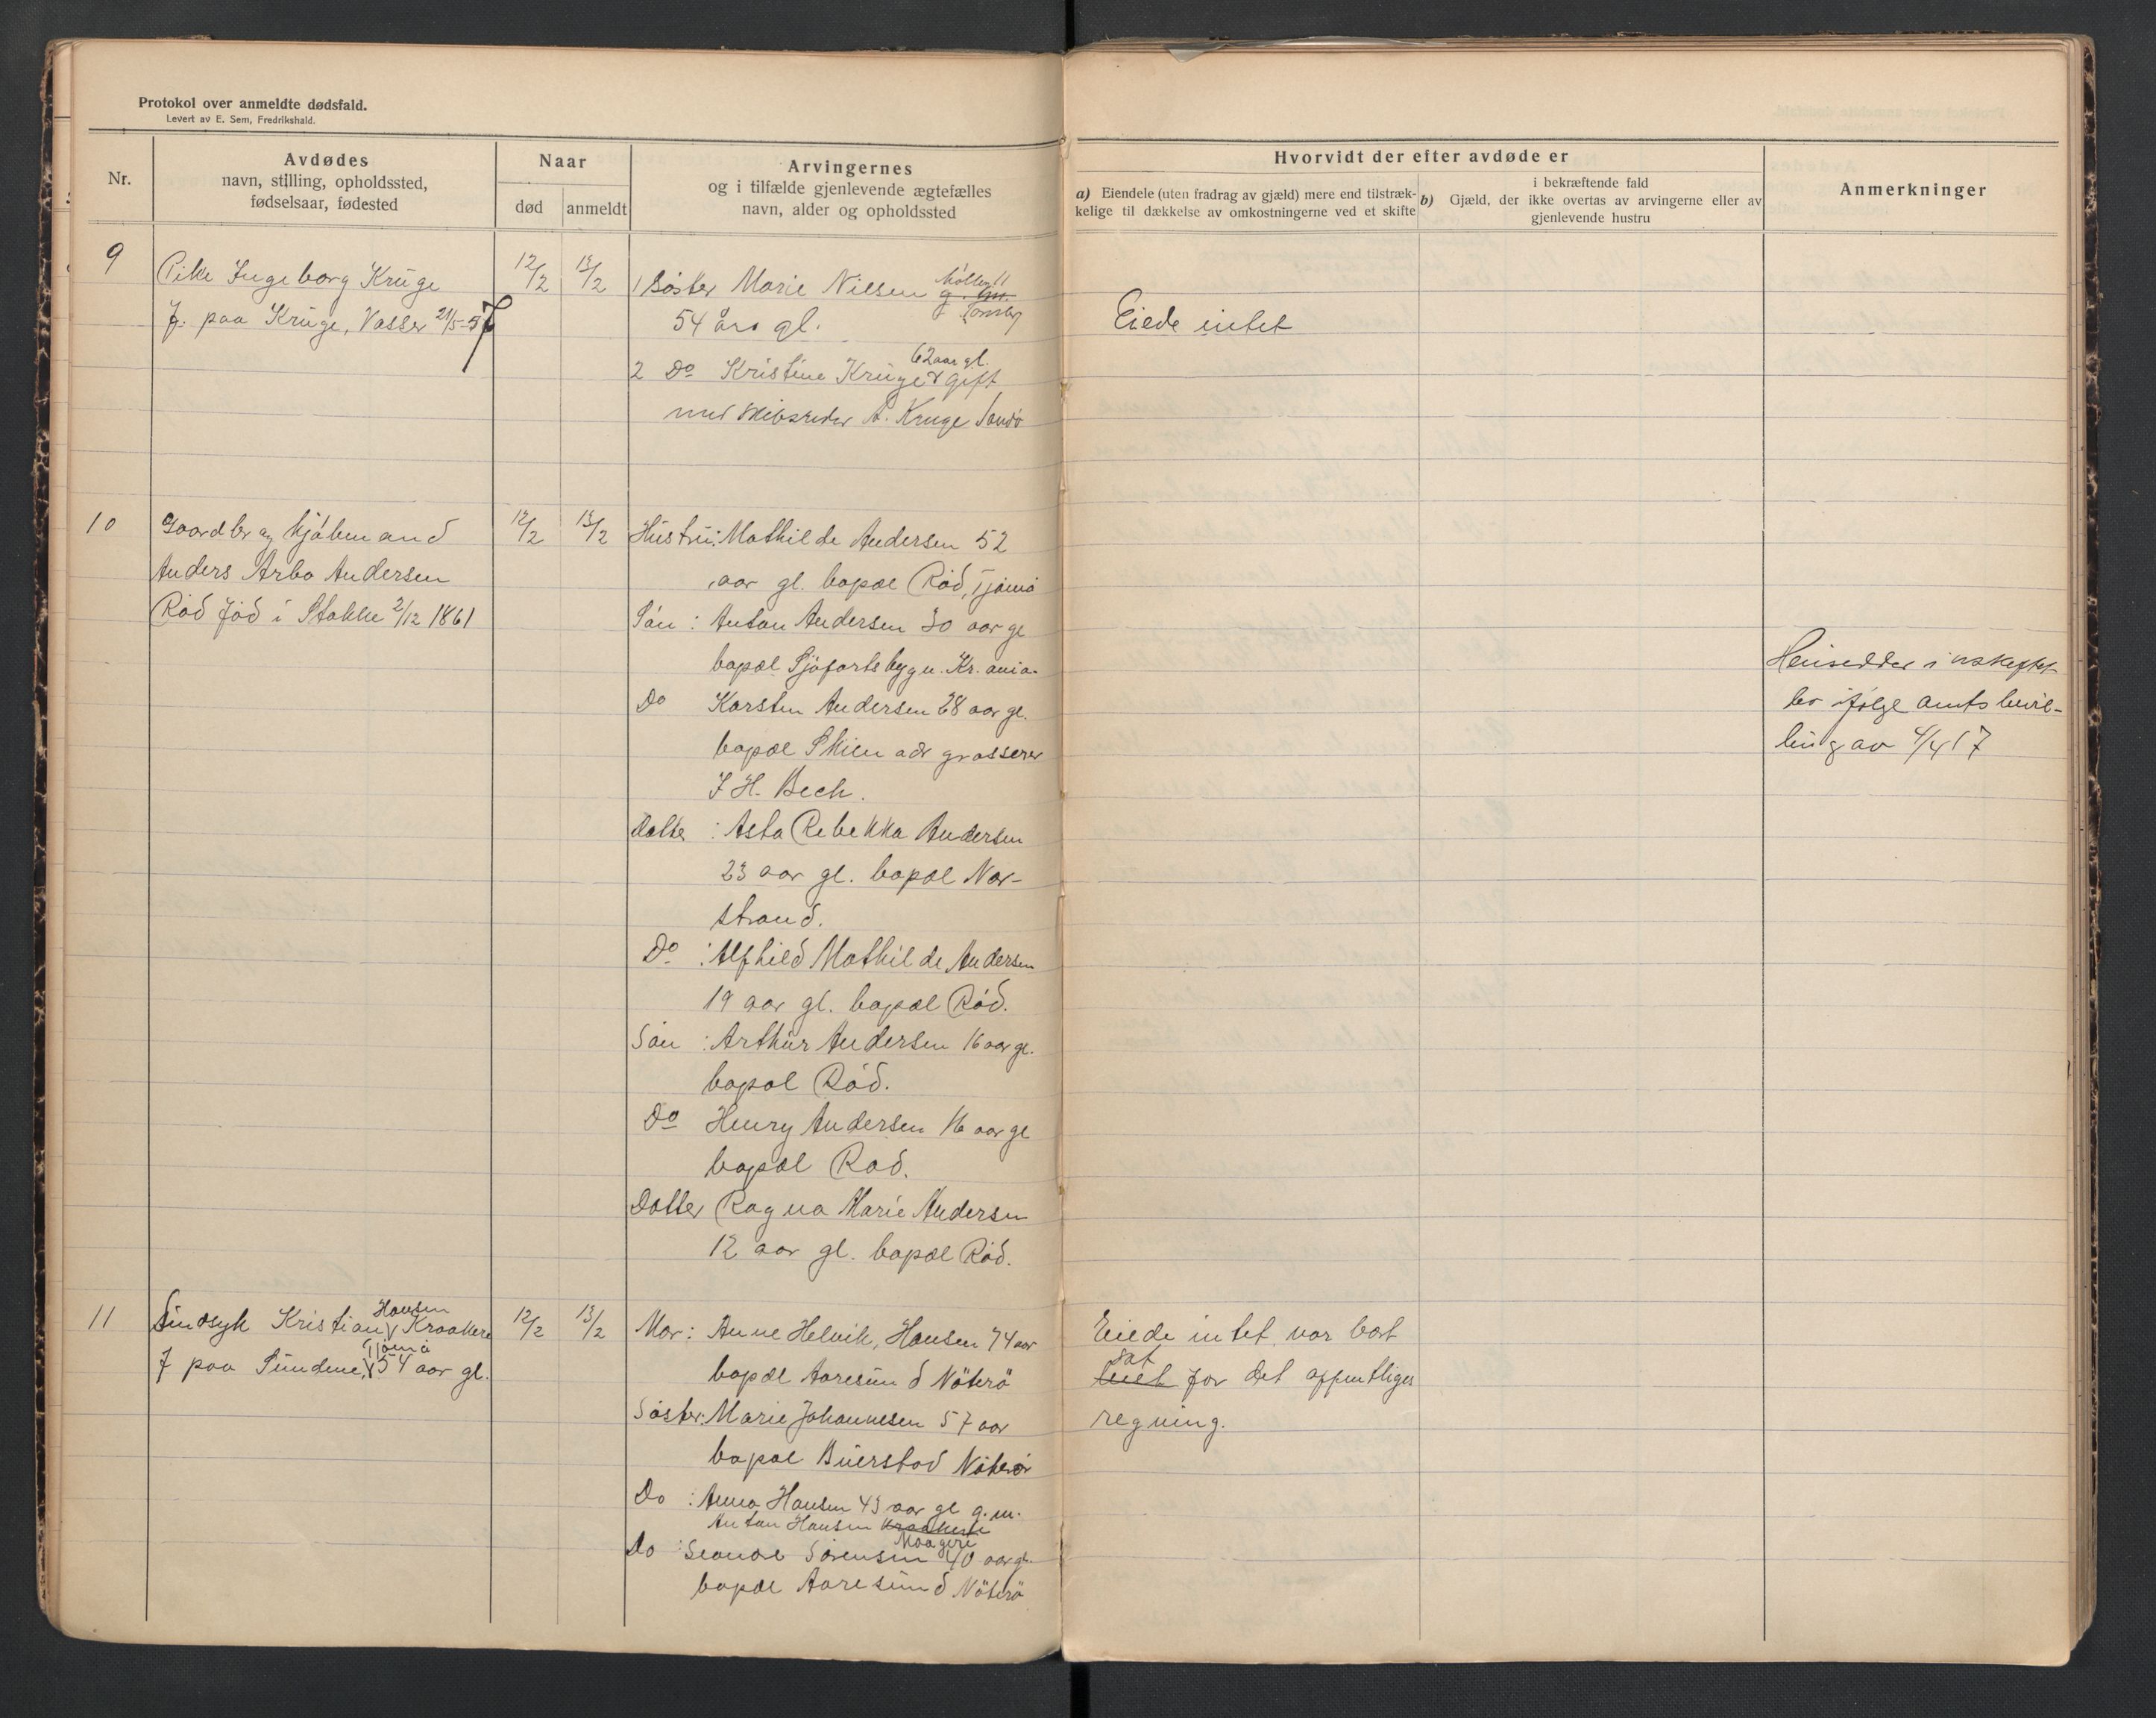 Protokol over anmeldte dødsfald.
Levert av E. Sem, Fredrikshald.
Nr.
Avdødes
navn, stilling, opholdssted,
fødselsaar, fødested
Naar
død
anmeldt
Arvingernes
og i tilfælde gjenlevende ægtefælles
navn, alder og opholdssted
Hvorvidt der efter avdøde er
a) Eiendele (uten fradrag av gjæld) mere end tilstræk-
kelige til dækkelse av omkostningerne ved et skifte
i bekræftende fald
b) Gjæld, der ikke overtas av arvingerne eller av
gjenlevende hustru
Anmerkninger
9
Pike Ingeborg Krüge
f. paa Krüge, Vasser 21/5-57
12/2
13/2
1 Søster Marie Nilsen g. m.
54 års gl.
62 aar gl.
2 Do Kristine Krüge gift
med skibsreder A. Kruge Sandø
Eiede intet
10
Gaardbr og Kjøbmand
Anders Arbo Andersen
Rød fød i Stokke 2/12 1861
12/2
13/2
Hustru: Mathilde Andersen 52
aar gl. bopæl Rød, Tjømø
Søn : Anton Andersen 30 aar gl
bopæl Sjøfartsbygn. Kr.ania.
Do Karsten Andersen 28 aar gl.
bopæl Skien adr grosserer
J H. Bech.
Datter : Asta Rebekka Andersen
23 aar gl. bopæl Nor-
strand.
Do : Alfhild Mathilde Andersen
19 aar gl. bopæl Rød.
Søn : Arthur Andersen 16 aar gl.
bopæl Rød.
Do Henry Andersen 16 aar gl
bopæl Rød.
Datter Ragna Marie Andersen
12 aar gl. bopæl Rød.
Hensidder i uskiftet
bo ifølge amtsbevil-
ling av 4/4 17
11
Hansen
Sindsyk Kristian Kraakere
Tjømø
f paa Sundene, 54 aar gl.
12/2
13/2
Mor: Anne Helvik, Hansen 74 aar
bopæl Aaresund Nøterø
Søster: Marie Johannesen 57 aar
bopæl Buerstad Nøterø
Do : Anna Hansen 43 aar gl g.m.
Anton Hansen Kraakere
Maagerø
Do : Sorensen 40 aar gl.
bopæl Aaresund Nöterö
Eiede intet var bort
sat
for det offentliges
regning.